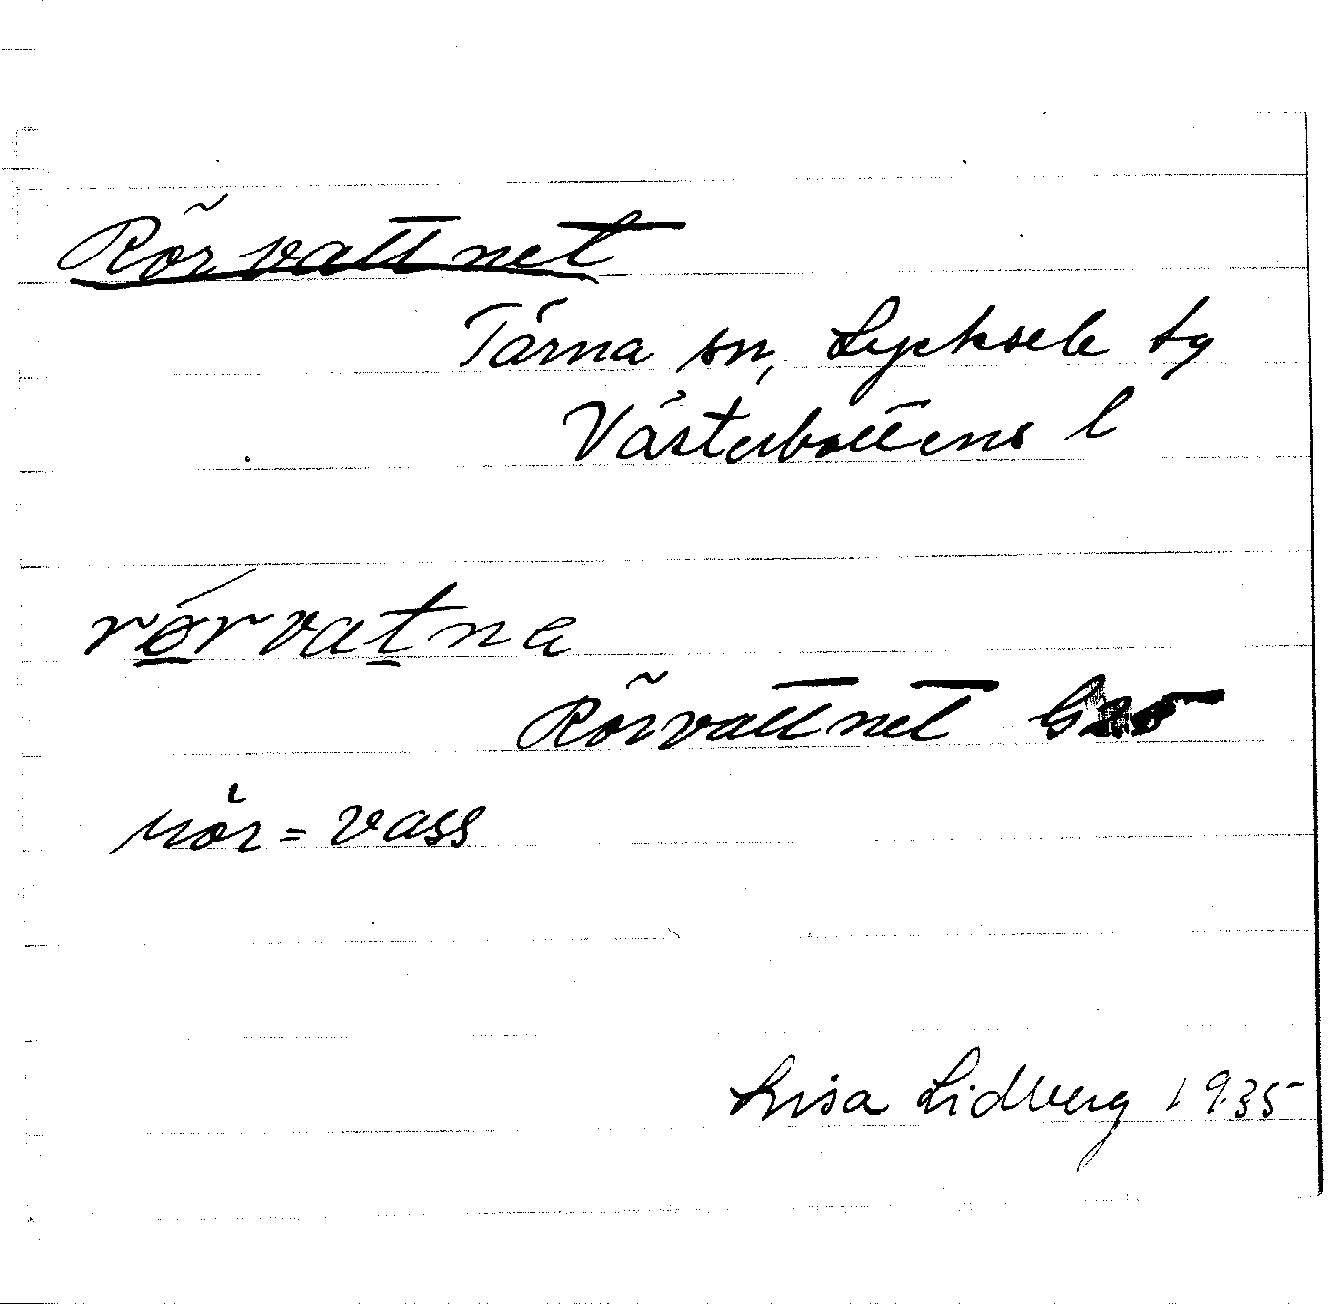 Rörvattnet
Tärna sn, Lycksele tg
Västerbottens l
rörvatna
Rörvattnet
rör = vass
Lisa Lidberg 1935